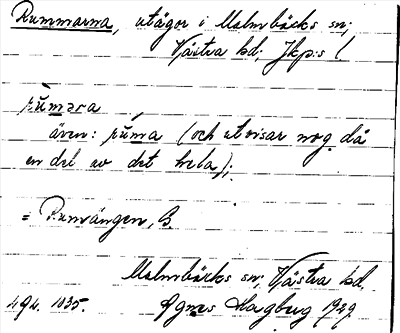 Rummarna, utägor i Malmbäcks sn;
Västra hd; Jkp:s l
rùmara
även: rùma (och utvisar nog då
en del av det hela);
= Rumvängen, B.
Malmbäcks sn; Västra hd.
494. 1035. Agnes Hagberg 1929